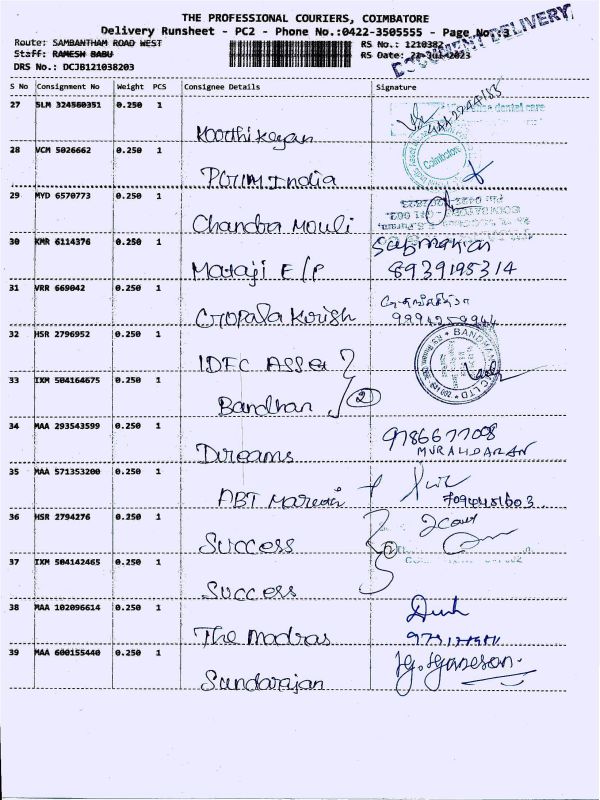 THE PROFESSIONAL COURIERS, COIMBATORE
Delivery Runsheet - PC2 - Phone No.:0422-3505555 - Page No.:3
DOCUMENT DELIVERY
Route: SAMBANTHAM ROAD WEST RS No.: 1210382
Staff: RAMESH BABU RS Date: 21-Jul-2023
DRS No.: DCJB121038203
S No Consignment No Weight PCS Consignee Details Signature
27 SLM 324560351 0.250 1
Moorthikeyan
dental care
28 VCM 5026662 0.250 1
PGIM India
Coimbatore
29 MYD 6570773 0.250 1
Chandra Mouli
30 KMR 6114376 0.250 1
Mataji E/P
8939195314
31 VRR 669042 0.250 1
Gopala Krish
32 HSR 2796952 0.250 1
IDFC Asse
33 IXM 504164675 0.250 1
Bandhan 2
34 MAA 293543599 0.250 1
Dreams
9786677098
MURALIDARAN
35 MAA 571353200 0.250 1
ABT Maruti
7094451603
36 HSR 2794276 0.250 1
Success
37 IXM 504142465 0.250 1
Success
38 MAA 102096614 0.250 1
The Madras
39 MAA 600155440 0.250 1
Sundarajan